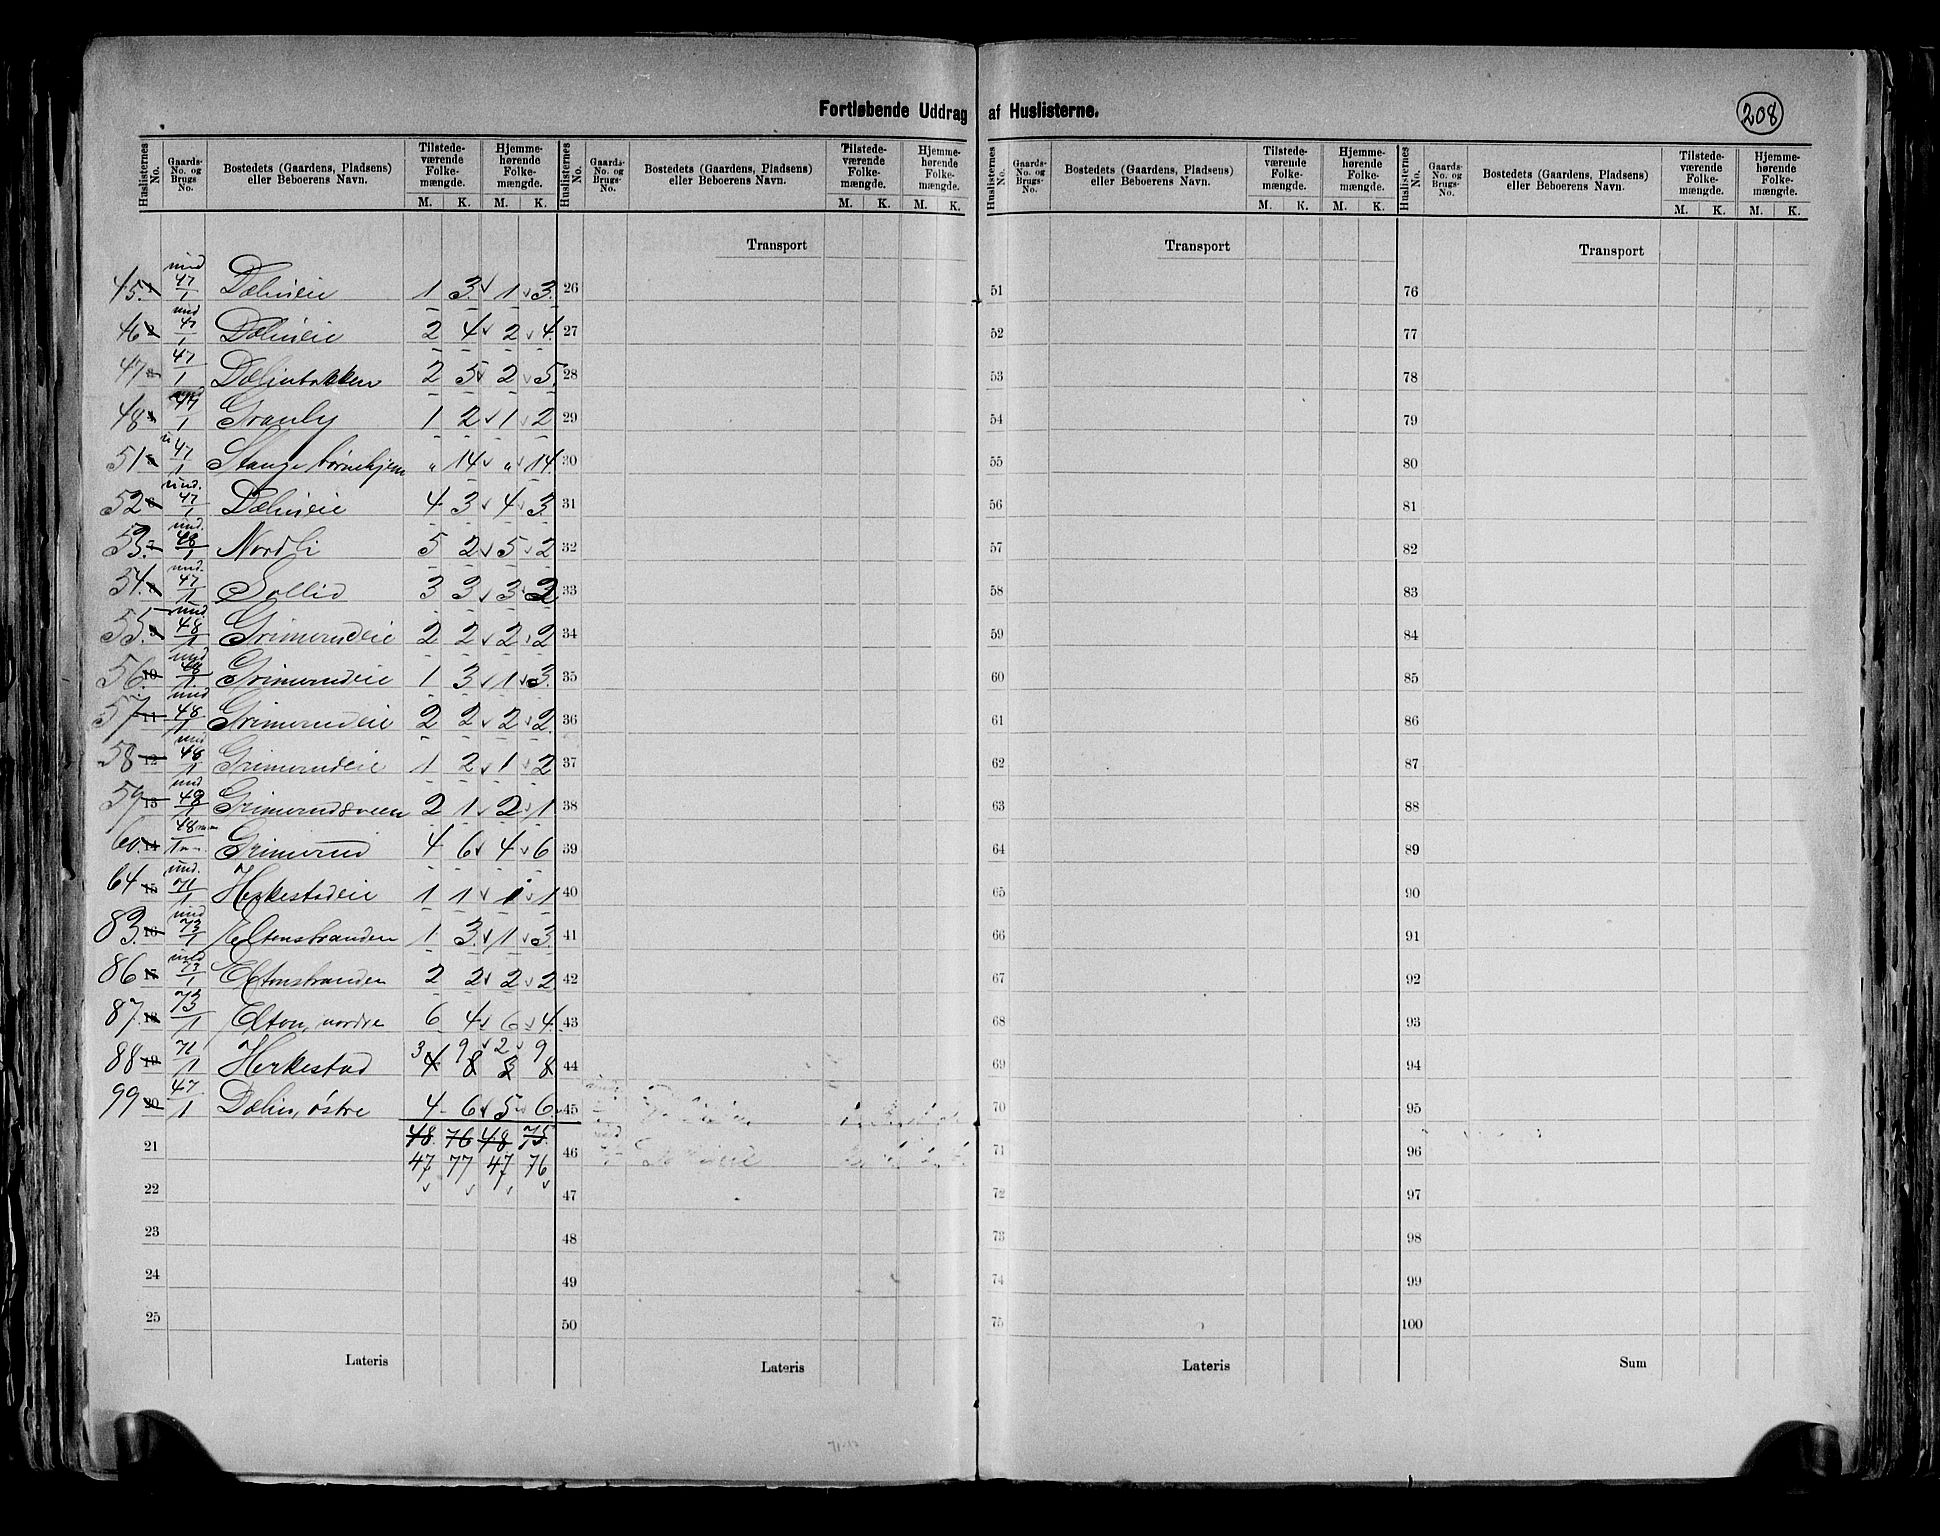 Fortløbende Uddrag af Huslisterne.
208
Huslisternes No. Gaards-No. og Brugs No. Bostedets (Gaardens, Pladsens) eller Beboerens Navn. Tilstedeværende Folkemængde. M. K. Hjemmehørende Folkemængde. M. K.
Huslisternes No. Gaards-No. og Brugs-No. Bostedets (Gaardens, Pladsens) eller Beboerens Navn. Tilstedeværende Folkemængde. M. K. Hjemmehørende Folkemængde. M. K.
Huslisternes No. Gaards-No. og Brugs-No. Bostedets (Gaardens, Pladsens) eller Beboerens Navn. Tilstedeværende Folkemængde. M. K. Hjemmehørende Folkemængde. M. K.
Huslisternes No. Gaards-No. og Brugs-No. Bostedets (Gaardens, Pladsens) eller Beboerens Navn. Tilstedeværende Folkemængde. M. K. Hjemmehørende Folkemængde. M. K.
Transport Transport Transport
45. und 47/1 Dælineie 1 3 1 3. 26 51 76
46 und 47/1 Dælineie 2 4 2 4. 27 52 77
47 47/1 Dælinbakken 2 5 2 5. 28 53 78
48 und 47/1 Granly 1 2 1 2 29 54 79
51 u 47/1 Stange børnehjem " 14 " 14. 30 55 80
52 und. 47/1 Dælineie 4 3 4 3. 31 56 81
53. und. 48/1 Nordli 5 2 5 2 32 57 82
54. und. 47/1 Sollid 3 3 3 2 33 58 83
55. und 48/1 Grimerudeie 2 2 2 2 34 59 84
56. 10 und 48/1 Grimerudeie 1 3 1 3. 35 60 85
57 11 und 48/1 Grimerudeie 2 2 2 2. 36 61 86
58 12 und 48/1 Grimerudeie 1 2 1 2 37 62 87
59 13 und 48/1 Grimerudsveen 2 1 2 1 38 63 88
60. 14 48/1 Grimerud 4 6 4 6 39 64 89
64 15 und. 71/1 Herkestadeie 1 1 1 1 40 65 90
83. 16 und 73/1 Eltonstranden 1 3. 1 3. 41 66 91
86 und 73/1 Eltonstranden 2 2 2 2 42 67 92
87. 18 73/1 Elton, nordre 6 4 6 4. 43 68 93
88 19 71/1 Herkestad 3 4 9 8 2 3 9 8 44 69 94
99 20 47/1 Dælin, østre 4 6 5 6. 45 70 95
48. 76 48 75.
21 47 77 47 76 46 71 96
22 47 72 97
23 48 73 98
24 49 74 99
25 50 75 100
Lateris Lateris Lateris Sum